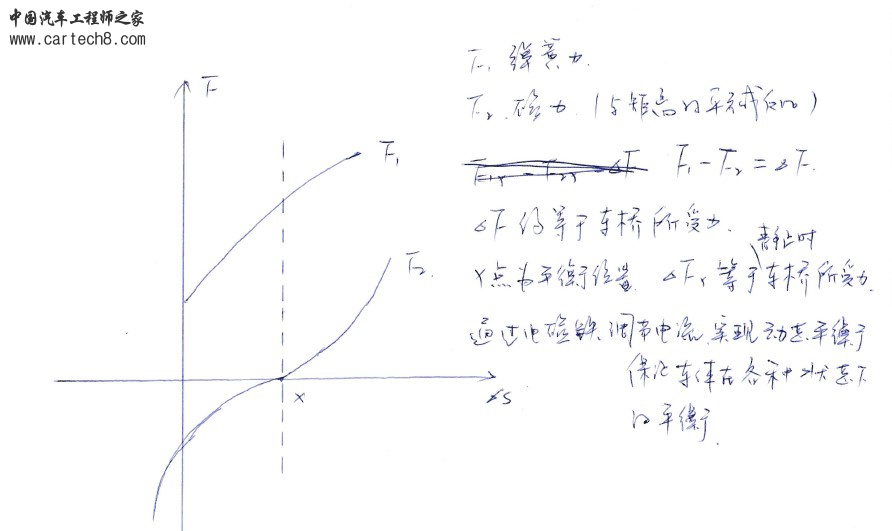 中国汽车工程师之家
www.cartech8.com
F
F₁
F₂
x
△S
F₁ 弹簧力.
F₂ 磁力 (与距离的平方成反比)
F₁ₓ - F₂ₓ = △F F₁-F₂=△F.
△F 得等于车桥所受力.
静止时
X点为平衡位置 △Fₓ等于车桥所受力.
通过电磁铁调节电流,实现动态平衡
保证车体在各种状态下
的平衡.